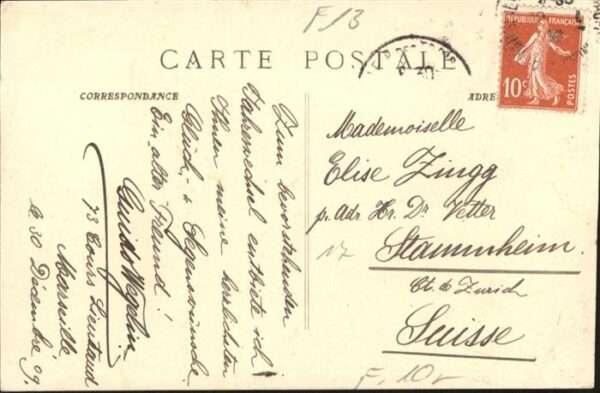 F 13
CARTE POSTALE
CORRESPONDANCE
ADRE
REPUBLIQUE FRANÇAISE
10c
POSTES
Zum bevorstehenden
Jahreswechsel entbiete ich
Ihnen meine herzlichsten
Glück- & Segenswünsche
Ein alter Freund!
Guido Wegelin
73 Cours Lieutaud
Marseille
le 30 Décembre 09.
Mademoiselle
Elise Zingg
p. Adr. Hr. Dr. Vetter
Stammheim
Ct. de Zurich
Suisse
17
F. 10